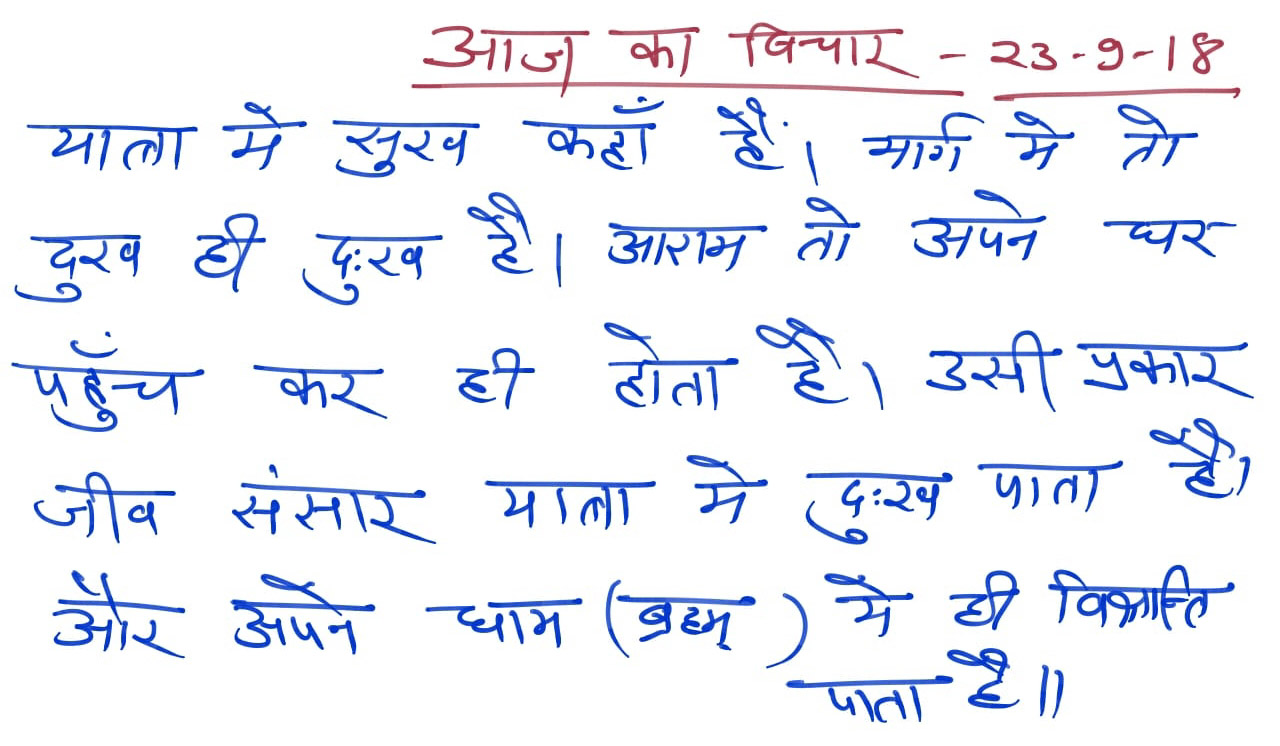 आज का विचार - 23-9-18
यात्रा मे सुख कहाँ हैं। मार्ग मे तो
दुख ही दुःख है। आराम तो अपने घर
पहुँच कर ही होता है। उसी प्रकार
जीव संसार यात्रा मे दुःख पाता है।
और अपने धाम (ब्रह्म) मे ही विश्रान्ति
पाता है॥